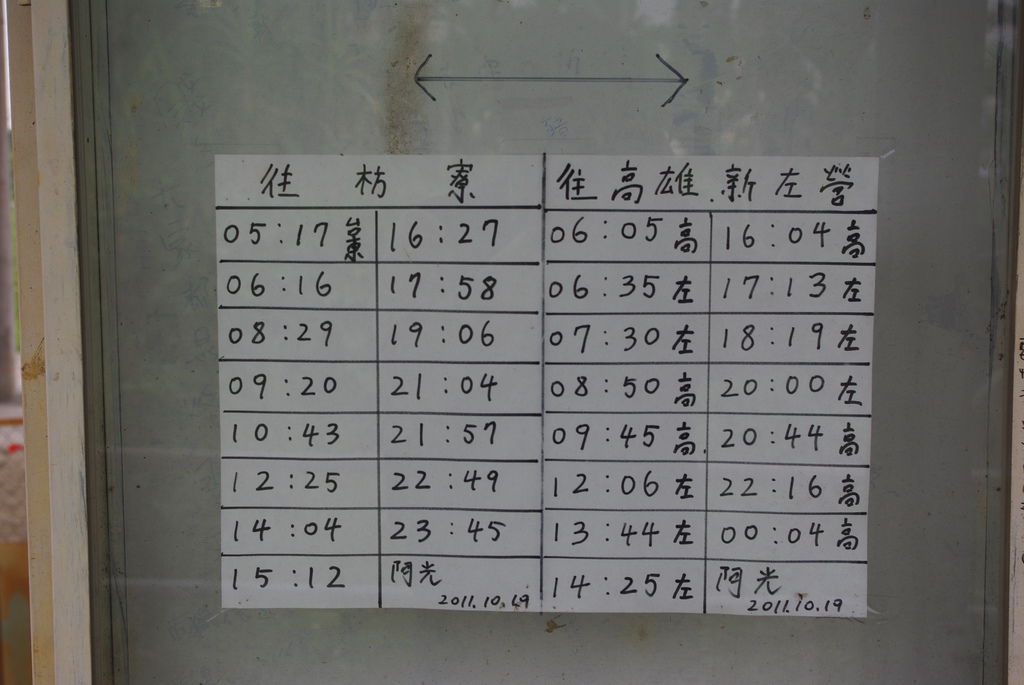 往 枋 寮
05:17 16:27
06:16 17:58
08:29 19:06
09:20 21:04
10:43 21:57
12:25 22:49
14:04 23:45
15:12 阿光
2011.10.19
往高雄.新左營
06:05高 16:04高
06:35左 17:13左
07:30左 18:19左
08:50高 20:00左
09:45高. 20:44高
12:06左 22:16高
13:44左 00:04高
14:25左 阿光
2011.10.19